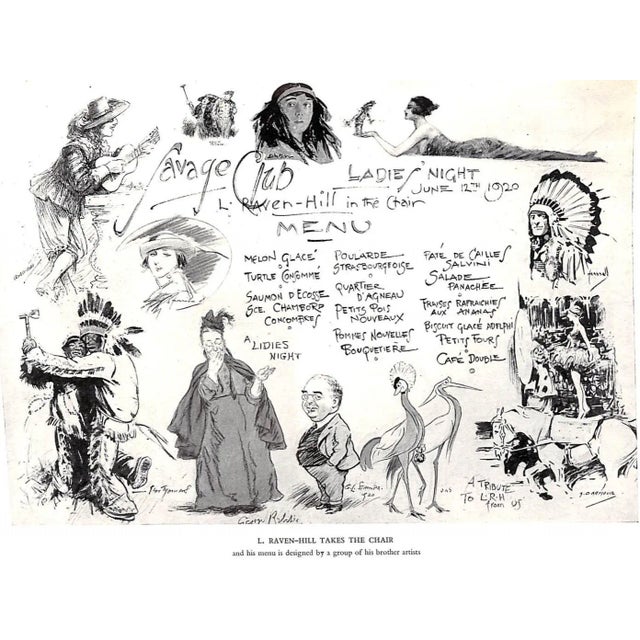 Savage Club
LADIES' NIGHT
JUNE 12TH 1920
L. RAVEN-HILL in the Chair
MENU
MELON GLACÉ
TURTLE CONSOMMÉ
SAUMON D'ECOSSE
SCE. CHAMBORD
CONCOMBRES
POULARDE
STRASBOURGEOISE
QUARTIER
D'AGNEAU
PETITS POIS
NOUVEAUX
POMMES NOUVELLES
BOUQUETIERE
PATÉ DE CAILLES
SALVINI
SALADE
PANACHÉE
FRAISES RAFRAICHIES
AUX ANANAS
BISCUIT GLACÉ ADELPHI
PETITS FOURS
CAFÉ DOUBLE
A LIDIES
NIGHT
A TRIBUTE
TO L.R-H
from US
L. RAVEN-HILL TAKES THE CHAIR
and his menu is designed by a group of his brother artists